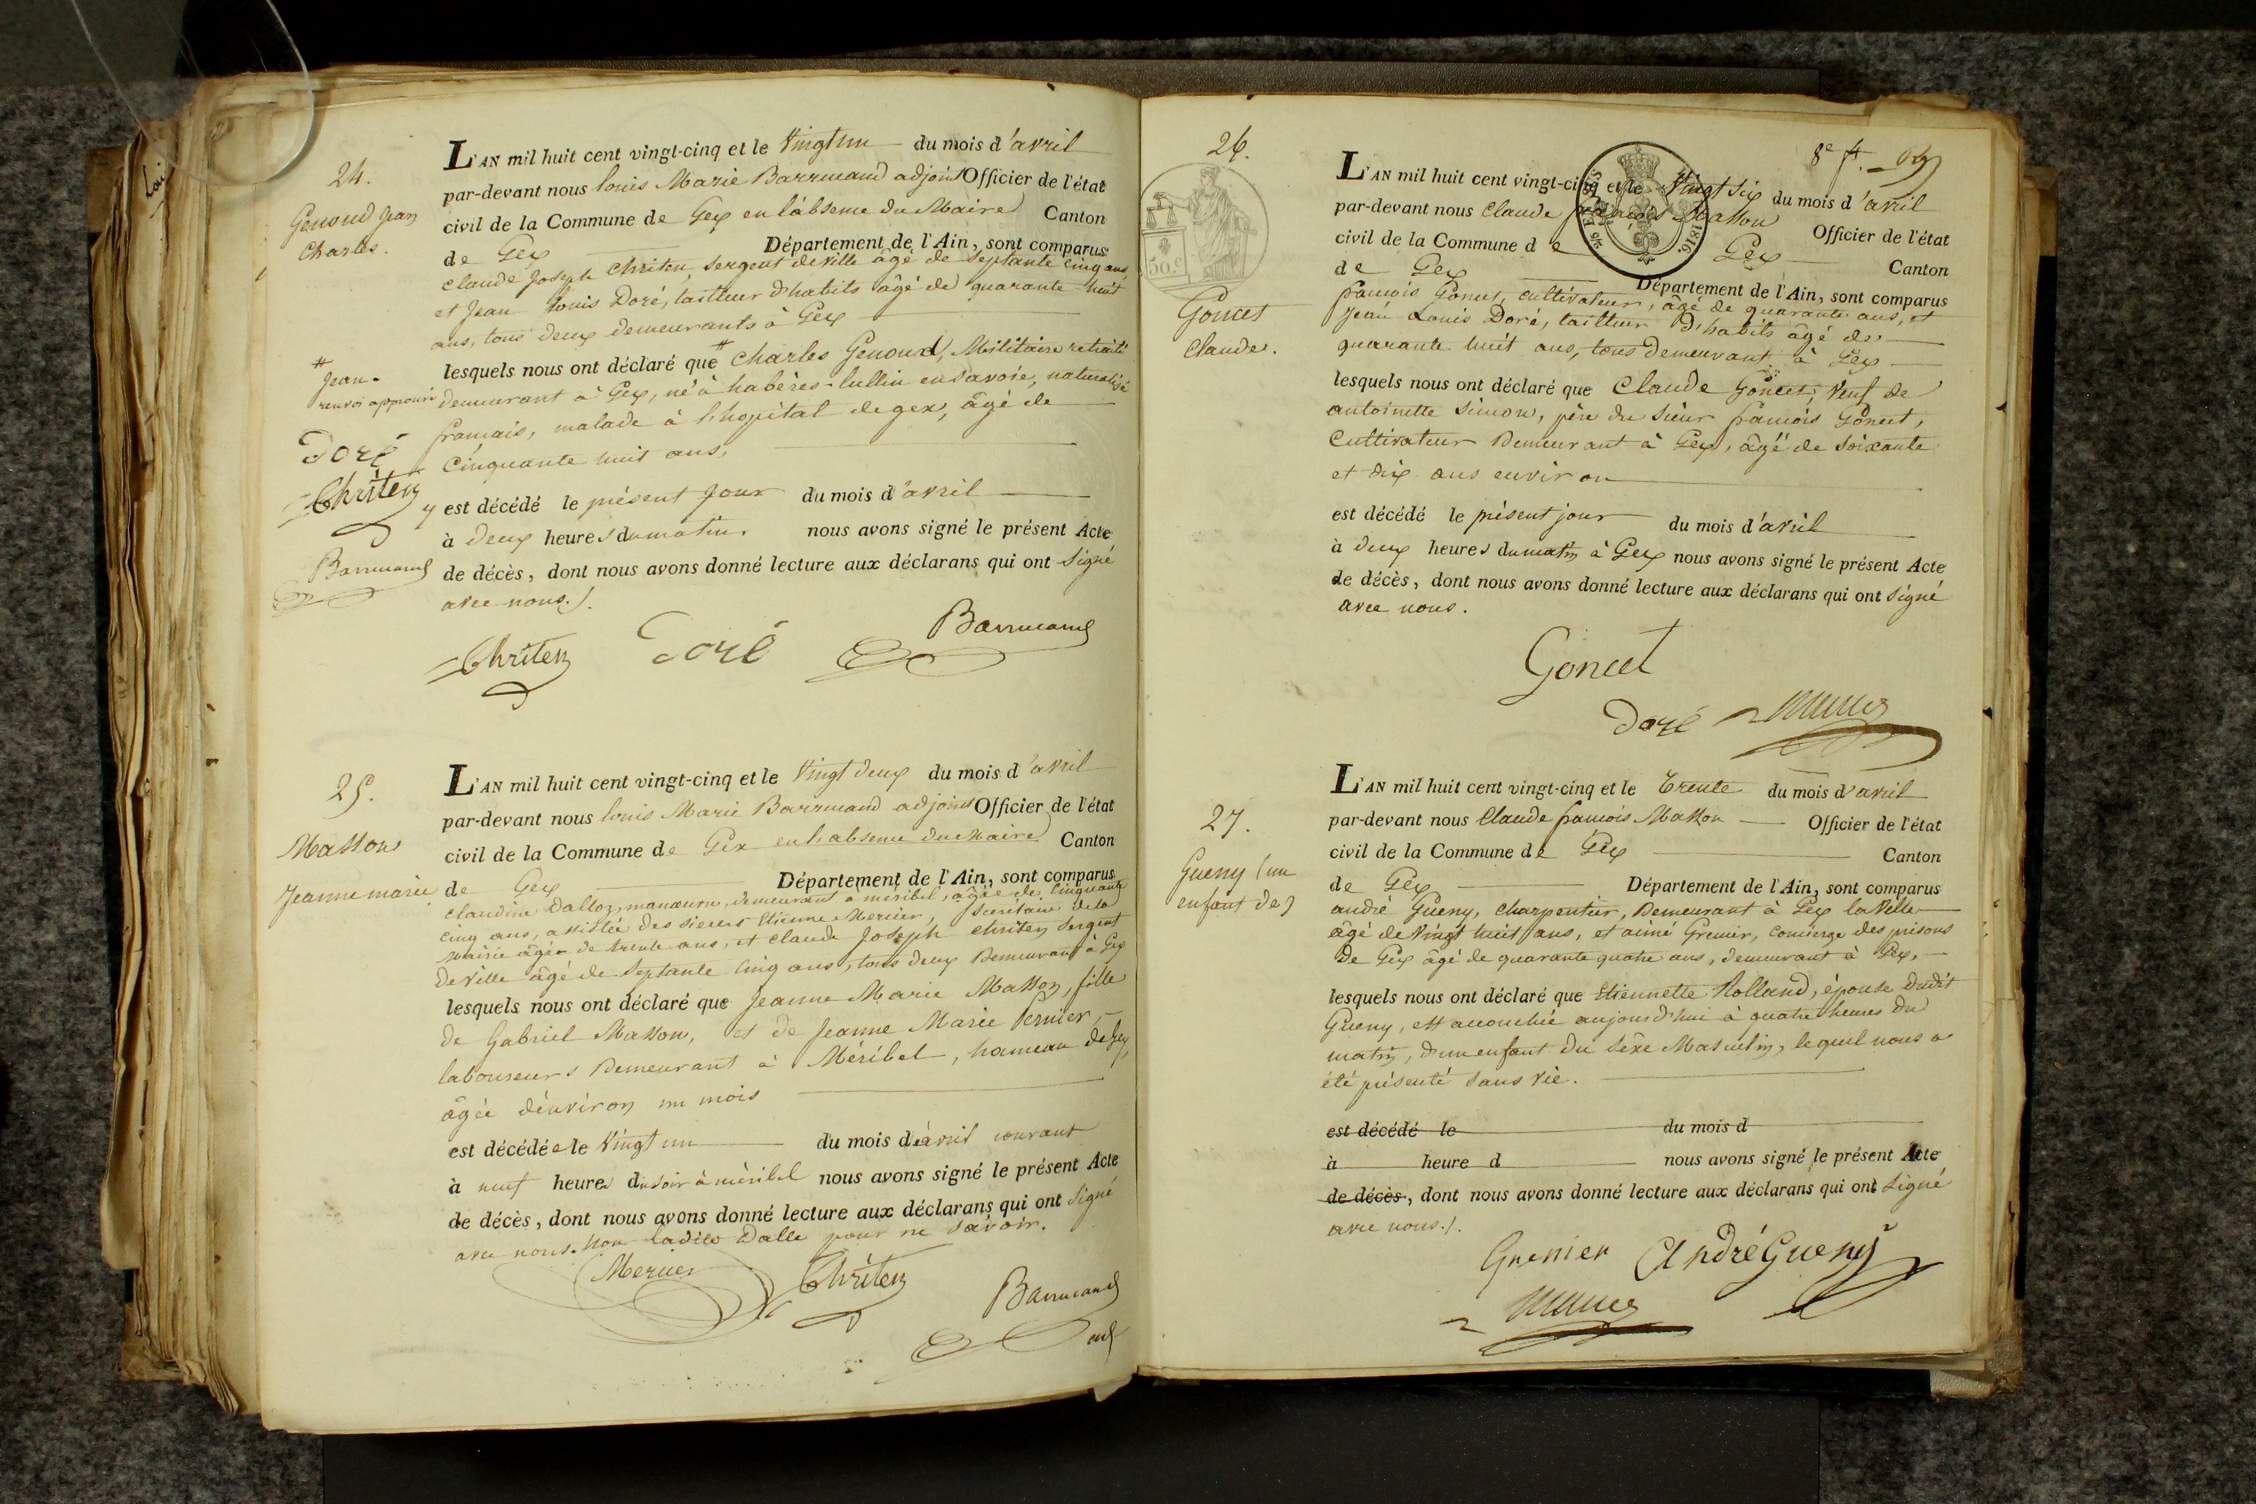 24.
Genoud Jean
Charles.
L'AN mil huit cent vingt-cinq et le Vingt un du mois d'avril
par-devant nous louis Marie Barrucand adjoint Officier de l'état
civil de la Commune de Gex en l'absence du Maire Canton
de Gex Département de l'Ain, sont comparus
Claude Joseph Christen, sergent de ville âgé de septante cinq ans,
et Jean Louis Doré, tailleur d'habits âgé de quarante huit
ans, tous deux demeurants à Gex
lesquels nous ont déclaré que # Charles Genoud, Militaire retraité
demeurant à Gex, né à habères-lullin en savoie, naturalisé
français, malade à l'hopital de gex, âgé de
Cinquante huit ans,
# Jean.
renvoi approuvé
Doré
Christen
Barrucand
est décédé le présent jour du mois d'avril
à deux heures du matin. nous avons signé le présent Acte
de décès, dont nous avons donné lecture aux déclarans qui ont signé
avec nous./.
Christen Doré Barrucand
25.
Masson
Jeanne marie
L'AN mil huit cent vingt-cinq et le Vingt deux du mois d'avril
par-devant nous louis Marie Barrucand adjoint Officier de l'état
civil de la Commune de Gex en l'absence du Maire Canton
de Gex Département de l'Ain, sont comparus
Claudine Dalloz, manœuvre, demeurant a méribel, âgée de Cinquante
cinq ans, assistée des sieurs Etienne Mercier, secrétaire de la
mairie âgé de trente ans, et Claude Joseph christen sergent
de ville âgé de septante cinq ans, tous deux Demeurant à Gex
lesquels nous ont déclaré que Jeanne Marie Masson, fille
de Gabriel Masson, et de Jeanne Marie Pernier,
laboureurs Demeurant à Méribel, hameau de Gex,
âgée d'environ un mois
est décédée le Vingt un du mois d'avril courant
à neuf heures du soir à méribel nous avons signé le présent Acte
de décès, dont nous avons donné lecture aux déclarans qui ont signé
avec nous. non ladite Dalle pour ne savoir.
Mercier Christen Barrucand
26.
50.c
Goncet
Claude.
8e ft.
1816.
L'AN mil huit cent vingt-cinq et le Vingt six du mois d'avril
par-devant nous Claude françois Masson Officier de l'état
civil de la Commune de Gex Canton
de Gex Département de l'Ain, sont comparus
françois Goncet, cultivateur, âgé de quarante ans, et
Jean Louis Doré, tailleur d'habits âgé de
quarante huit ans, tous demeurant à Gex
lesquels nous ont déclaré que Claude Goncet, Veuf de
antoinette Simon, père du sieur françois Goncet,
Cultivateur Demeurant à Gex, âgé de soixante
et dix ans environ
est décédé le présent jour du mois d'avril
à deux heures du matin à Gex nous avons signé le présent Acte
de décès, dont nous avons donné lecture aux déclarans qui ont signé
avec nous.
Goncet
Doré
27.
Gueny (un
enfant de)
L'AN mil huit cent vingt-cinq et le Trente du mois d'avril
par-devant nous Claude françois Masson Officier de l'état
civil de la Commune de Gex Canton
de Gex Département de l'Ain, sont comparus
andré Gueny, Charpentier, Demeurant à Gex la Ville
âgé de Vingt huit ans, et aimé Grenier, Concierge des prisons
De Gex âgé de quarante quatre ans, demeurant à Gex,
lesquels nous ont déclaré que Etiennette Rolland, épouse dudit
Gueny, est accouchée aujourd'hui à quatre heures du
matin, d'un enfant du sexe Masculin, lequel nous a
été présenté sans vie.
est décédé le du mois d
à heure d nous avons signé le présent Acte
de décès, dont nous avons donné lecture aux déclarans qui ont signé
avec nous./.
Grenier André Gueny